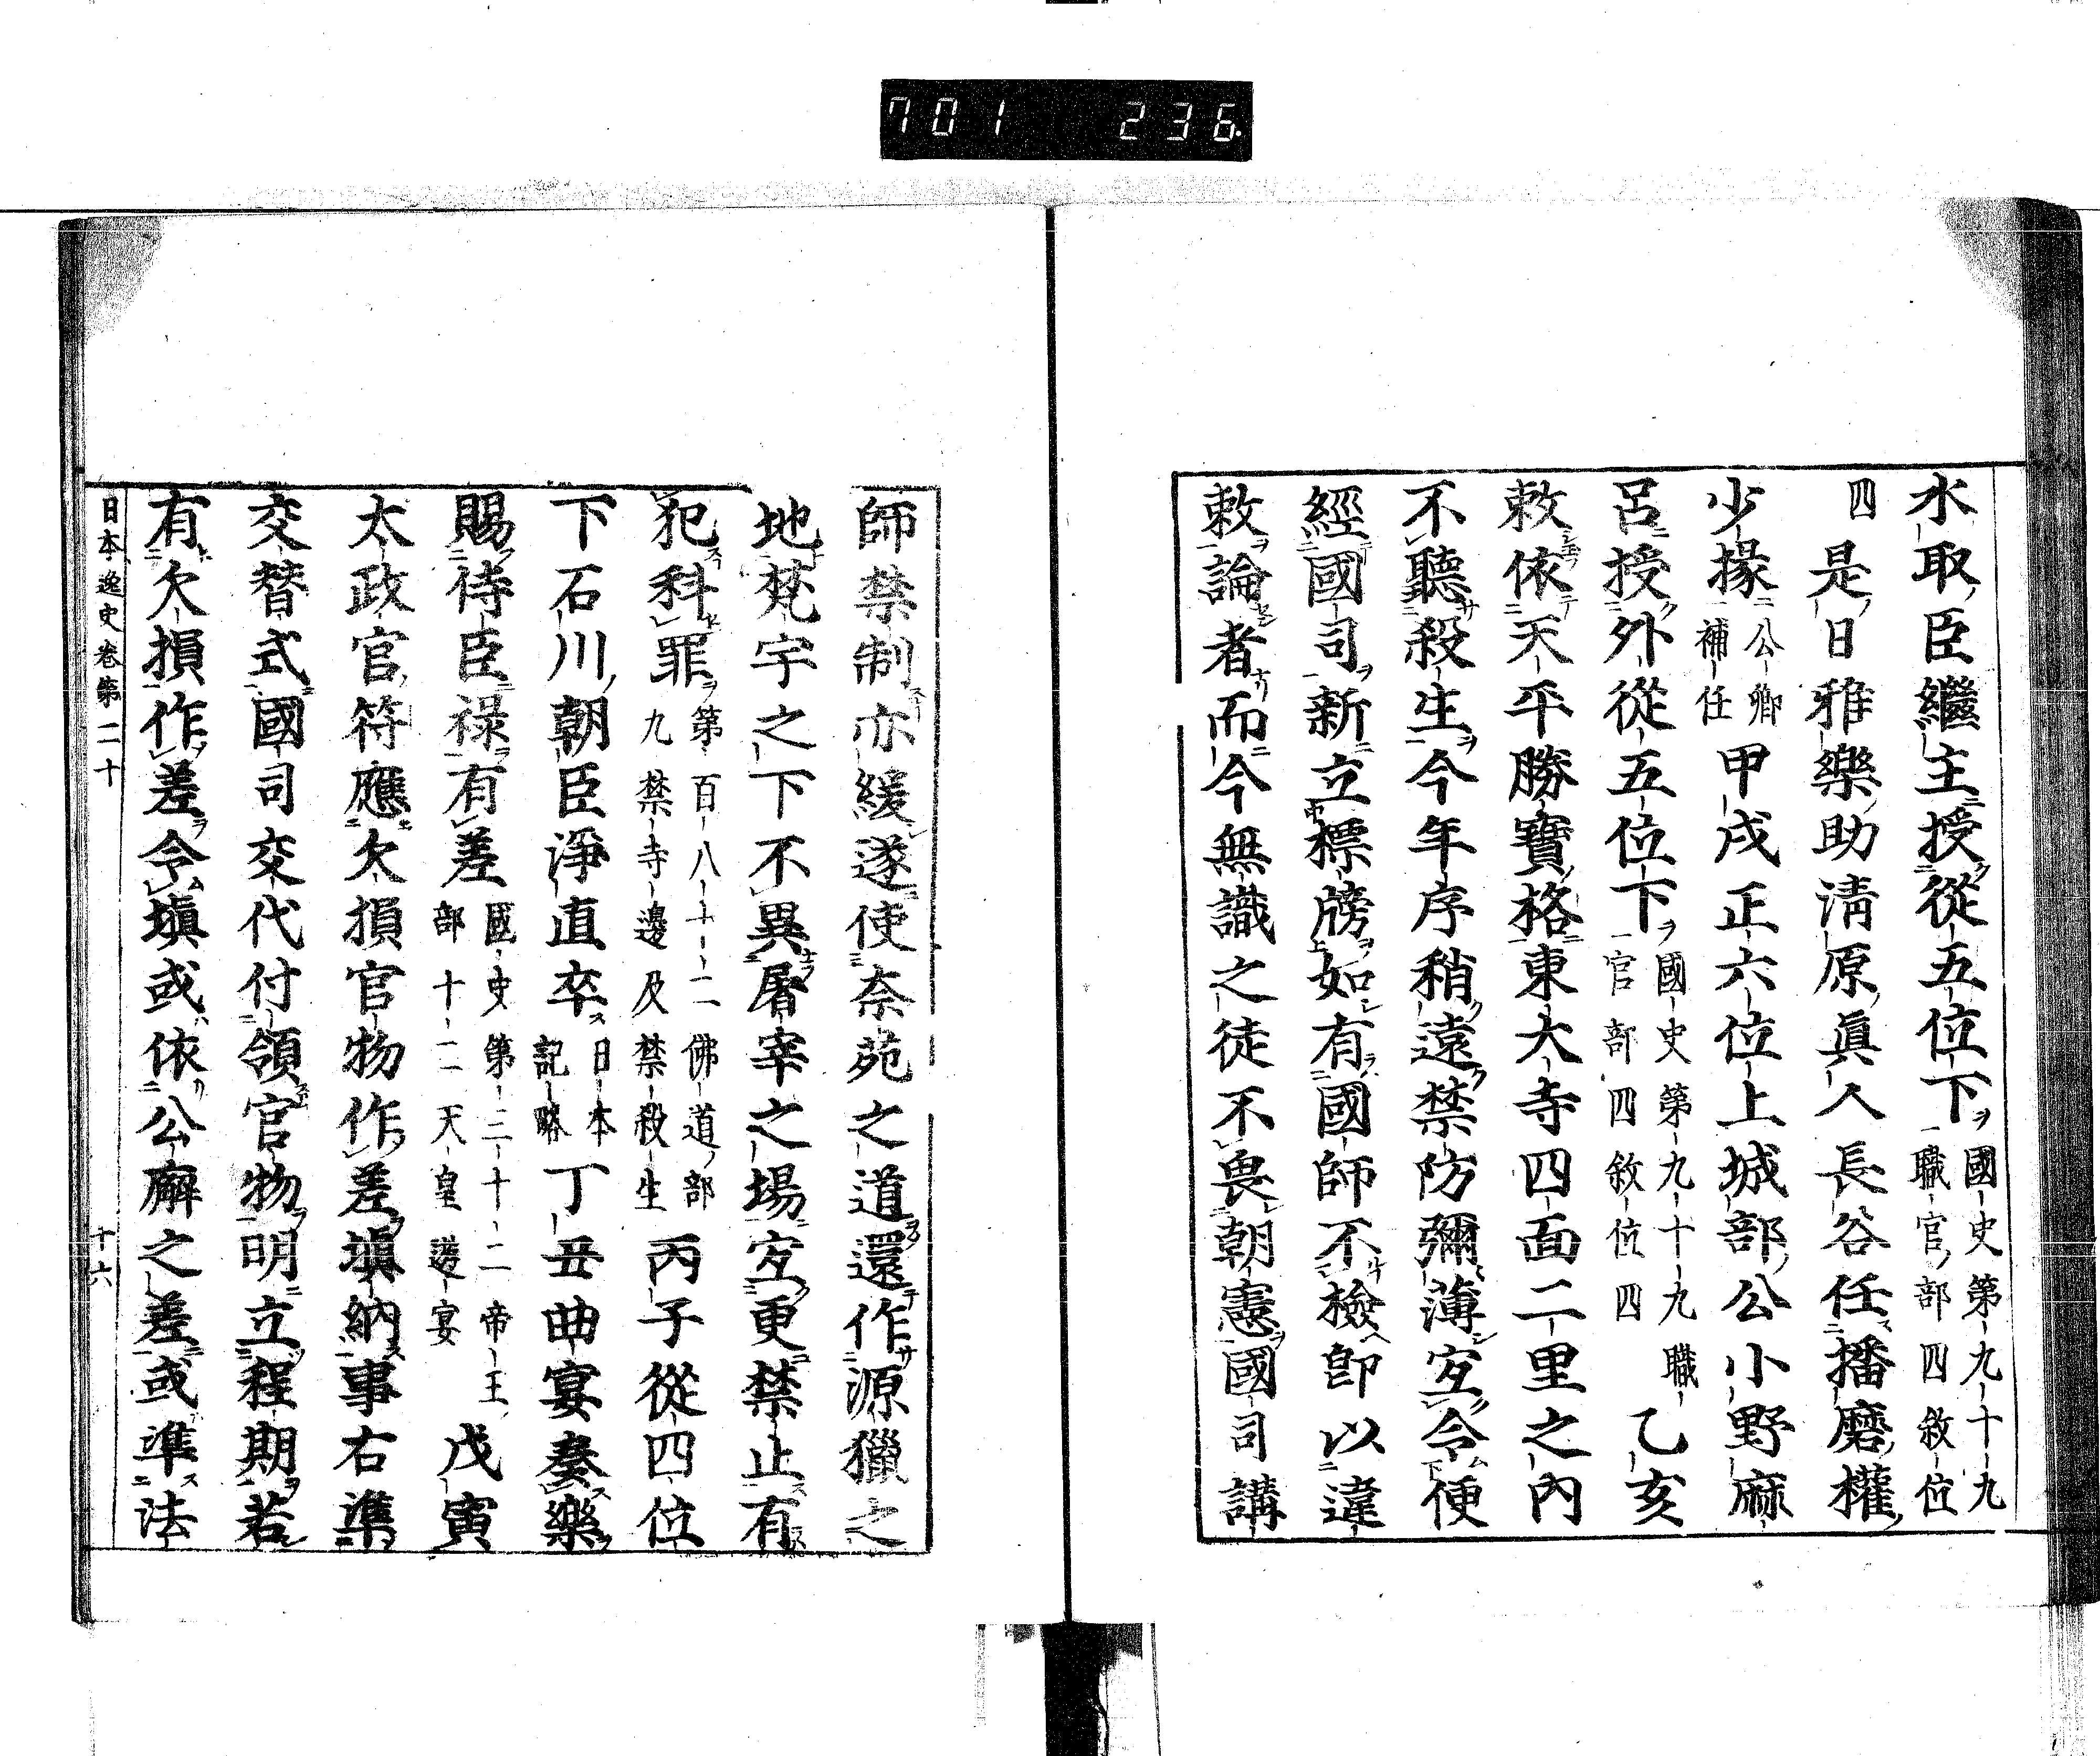 701 236
水取臣繼主授從五位下國史第九十九職官部四敘位
四是日雅樂助淸原眞人長谷任播磨權
少掾公卿補任甲戌正六位上城部公小野麻
呂授外從五位下國史第九十九職官部四敘位四乙亥
敕依天平勝寶格東大寺四面二里之內
不聽殺生今年序稍遠禁防彌薄宐令便
經國司新立標牓如有國師不檢卽以違
敕論者而今無識之徒不畏朝憲國司講
師禁制亦緩遂使奈苑之道還作源獵之
地梵宇之下不異屠宰之場宐更禁止有
犯科罪第百八十二佛道部九禁寺邊及禁殺生丙子從四位
下石川朝臣淨直卒日本記略丁丑曲宴奏樂
賜侍臣祿有差國史第三十二帝王部十二天皇遊宴戊寅
太政官符應欠損官物作差塡納事右準
交替式國司交代付領官物明立程期若
有欠損作差令塡或依公廨之差或準法
日本逸史卷第二十 十六